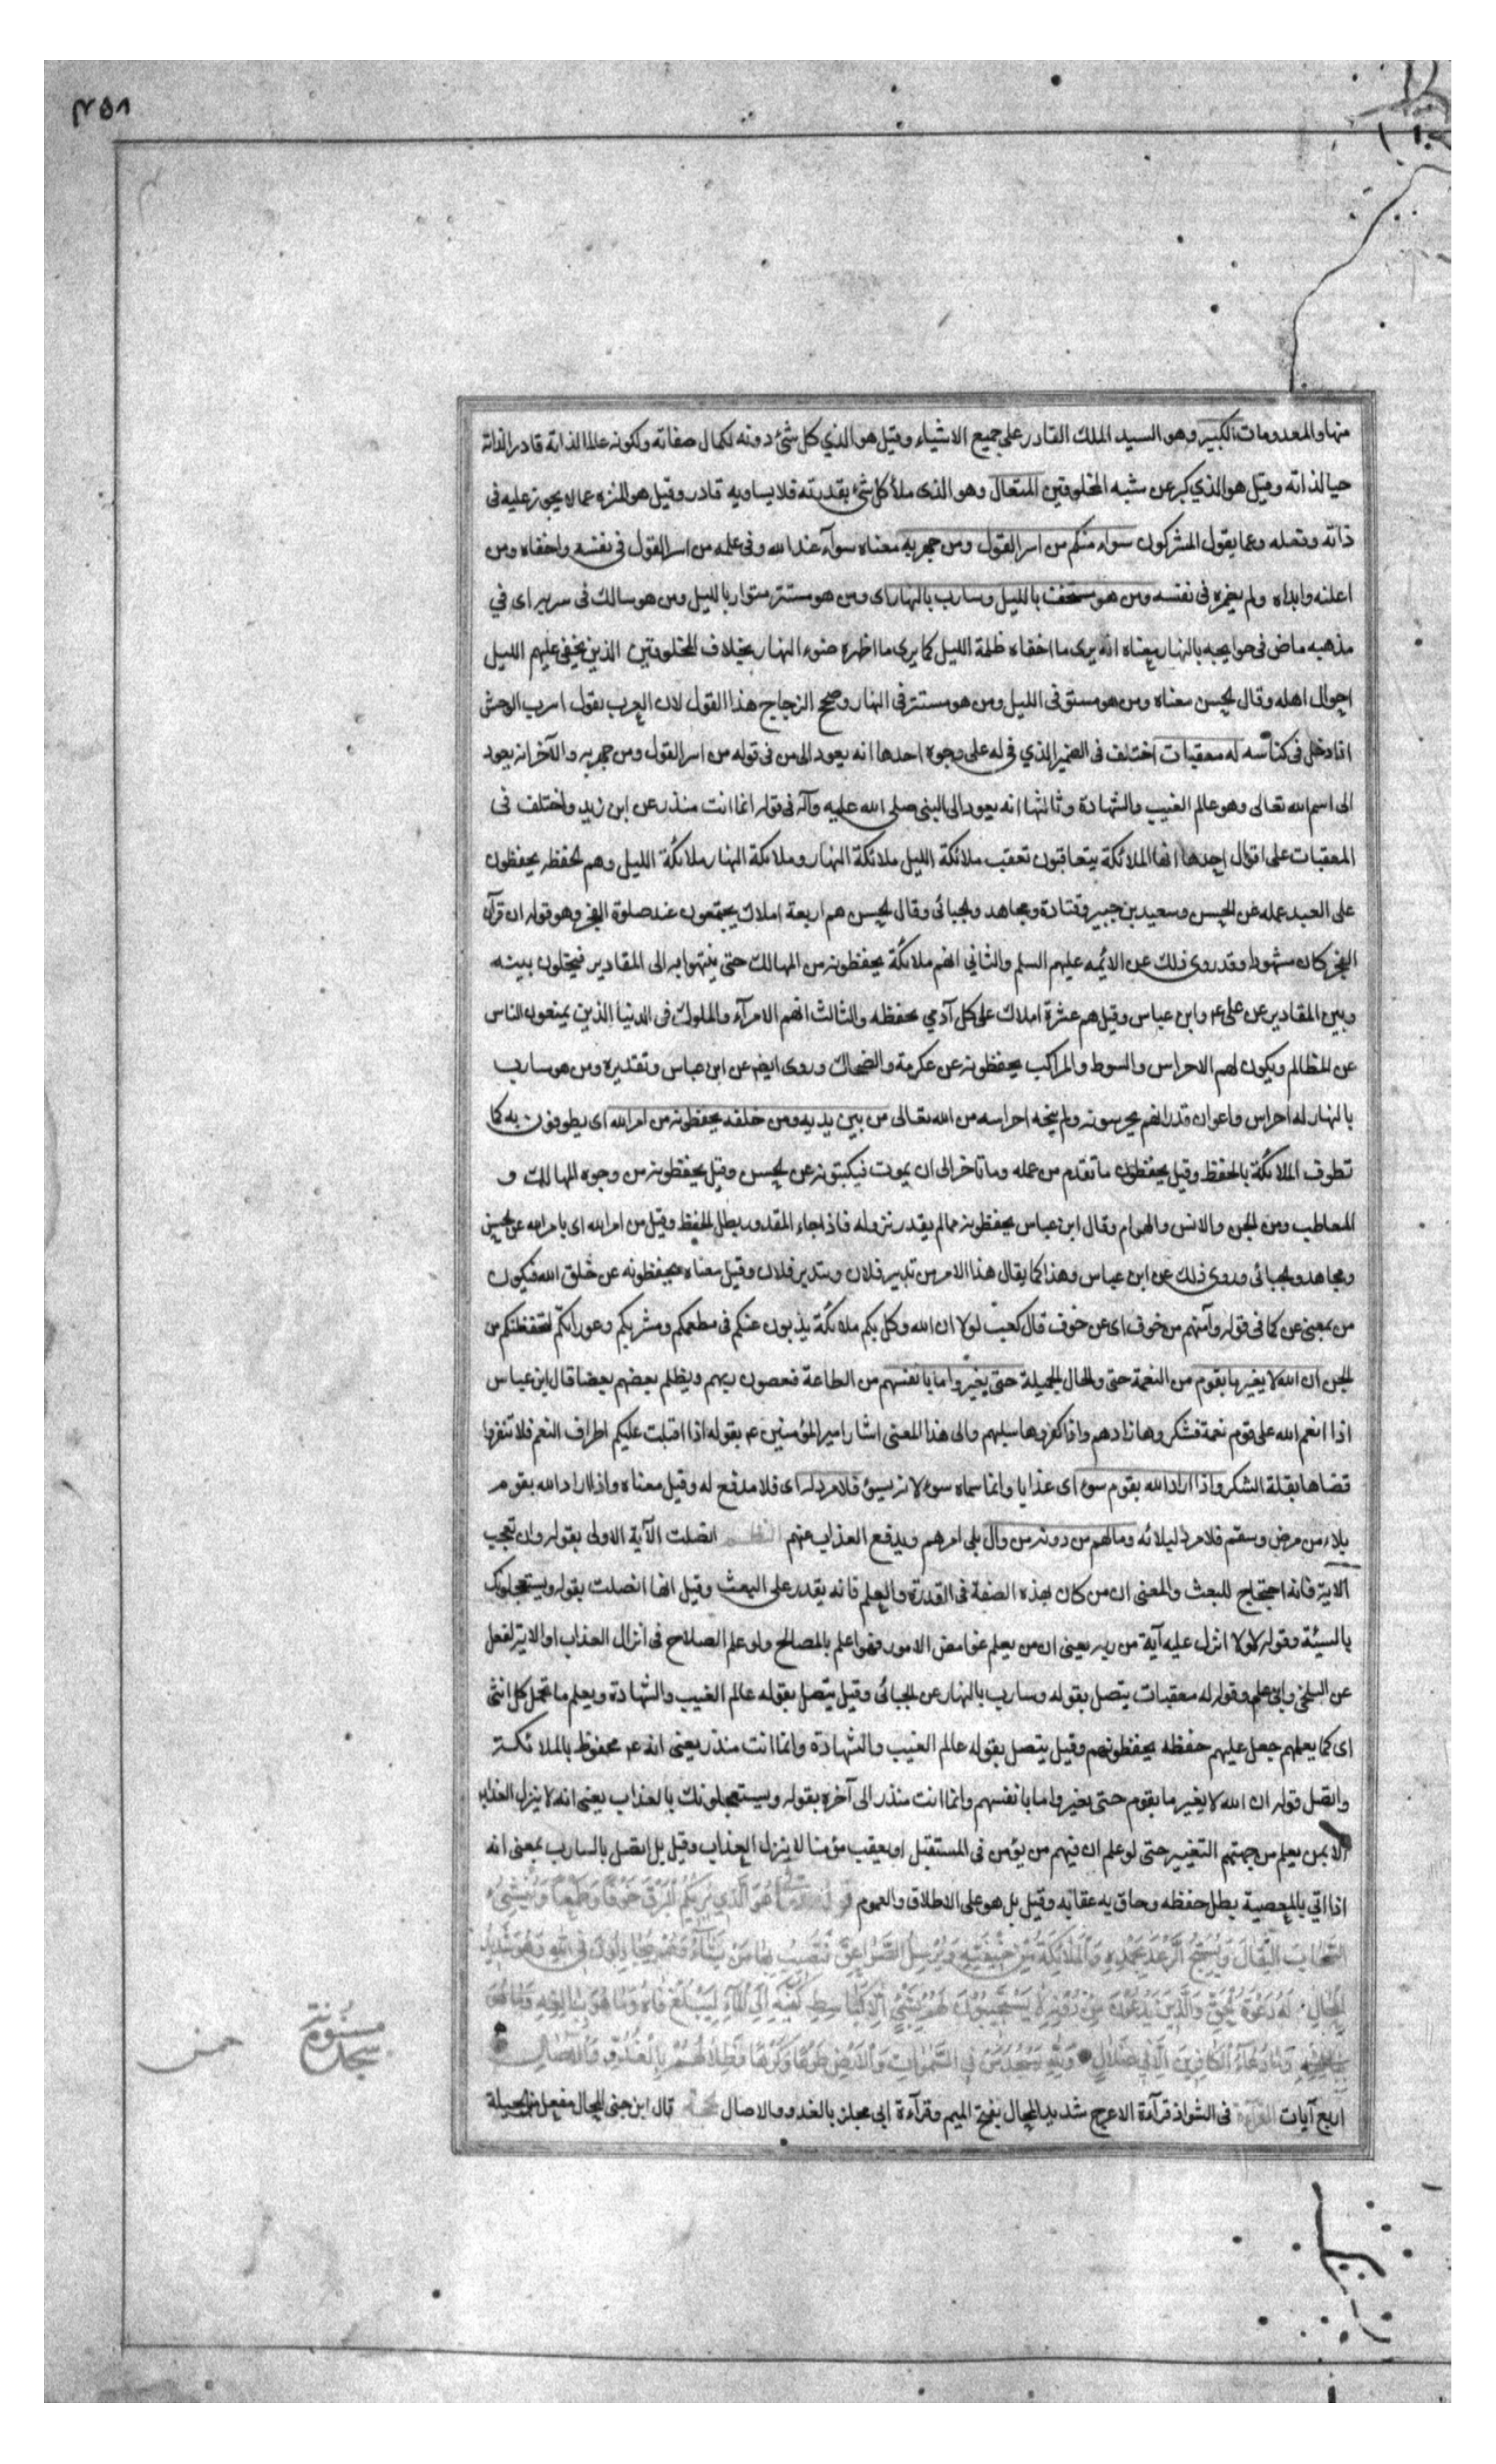 ٣٥٨
منها والمعدومات الكبير وهو السيد الملك القادر على جميع الاشياء وقيل هو الذي كل شئ دونه لكمال صفاته ولكونه عالما لذاته قادرا لذاته
حيا لذاته وقيل هو الذي كبر عن شبه المخلوقين المتعال وهو الذى علا كل شئ بقدرته فلا يساويه قادر وقيل هو المنزه عما لا يجوز عليه فى
ذاته وفعله وعما يقول المشركون سواء منكم من اسر القول ومن جهر به معناه سواء عند الله وفى علمه من اسر القول فى نفسه واخفاه ومن
اعلنه وابداه ولم يضمره فى نفسه ومن هو مستخف بالليل وسارب بالنهار اى ومن هو مستتر متوار بالليل ومن هو سالك فى سربه اى في
مذهبه ماض فى حوايجه بالنهار معناه انه يرى ما اخفاه ظلمة الليل كما يرى ما اظهره ضوء النهار بخلاف المخلوقين الذين يخفى عليهم الليل
احوال اهله وقال الحسن معناه ومن هو مستتر فى الليل ومن هو مستتر فى النهار وصحح الزجاج هذا القول لان العرب تقول انسرب الوحش
اذا دخل فى كناسه له معقبات اختلف فى الضمير الذي فى له على وجوه احدها انه يعود الى من فى قوله من اسر القول ومن جهر به والآخر انه يعود
الى اسم الله تعالى وهو عالم الغيب والشهادة وثالثها انه يعود الى النبى صلى الله عليه وآله فى قوله انما انت منذر عن ابن زيد واختلف فى
المعقبات على اقوال احدها انها الملائكة يتعاقبون تعقب ملائكة الليل ملائكة النهار وملائكة النهار ملائكة الليل وهم الحفظة يحفظون
على العبد عمله عن الحسن وسعيد بن جبير وقتادة ومجاهد والجبائى وقال الحسن هم اربعة املاك يجتمعون عند صلوة الفجر وهو قوله ان قرآن
الفجر كان مشهودا وقد روى ذلك عن الائمه عليهم السلم والثاني انهم ملائكة يحفظونه من المهالك حتى ينتهوا به الى المقادير فيخلون بينه
وبين المقادير عن على ع وابن عباس وقيل هم عشرة املاك على كل آدمي يحفظه والثالث انهم الامرآء والملوك فى الدنيا الذين يمنعون الناس
عن المظالم ويكون لهم الاحراس والسوط والمراكب يحفظونه عن عكرمة والضحاك وروى ايضا عن ابن عباس وتقديره ومن هو سارب
بالنهار له احراس واعوان قدر انهم يحرسونه ولم ينجه احراسه من الله تعالى من بين يديه ومن خلفه يحفظونه من امر الله اى يطوفون به كما
تطوف الملائكة بالحفظ وقيل يحفظون ما تقدم من عمله وما تاخر الى ان يموت فيكتبونه عن الحسن وقيل يحفظونه من وجوه المهالك و
المعاطب ومن الجن والانس والهوام وقال ابن عباس يحفظونه مما لم يقدر نزوله فاذا جاء المقدور بطل الحفظ وقيل من امر الله اى بامر الله عن الحسن
ومجاهد والجبائى وروى ذلك عن ابن عباس وهذا كما يقال هذا الامر من تدبير فلان وبتدبير فلان وقيل معناه يحفظونه عن خلق الله فيكون
من بمعنى عن كما فى قوله وآمنهم من خوف اى عن خوف قال كعب لولا ان الله وكل بكم ملائكة يذبون عنكم فى مطعمكم ومشربكم وعوراتكم لتخطفتكم
الجن ان الله لا يغير ما بقوم من النعمة والحال الجميلة حتى يغيروا ما بانفسهم من الطاعة فيعصون ربهم ويظلم بعضهم بعضا قال ابن عباس
اذا انعم الله على قوم نعمة فشكروها زادهم واذا كفروها سلبهم والى هذا المعنى اشار امير المؤمنين ع بقوله اذا اقبلت عليكم اطراف النعم فلا تنفروا
قصاها بقلة الشكر واذا اراد الله بقوم سوء اى عذابا وانما سماه سوء لانه يسوئ فلا مرد له اى فلا مدفع له وقيل معناه واذا اراد الله بقوم
بلاء من مرض وسقم فلا مرد لبلائه وما لهم من دونه من وال يلى امرهم ويدفع العذاب عنهم النظم اتصلت الآية الاولى بقوله وان تعجب
الاية فانه احتجاج للبعث والمعنى ان من كان بهذه الصفة فى القدرة والعلم فانه يقدر على البعث وقيل انها اتصلت بقوله ويستعجلونك
بالسيئة وقوله لولا انزل عليه آية من ربه يعنى ان من يعلم غوامض الامور فهو اعلم بالمصالح ولو علم الصلاح فى انزال العذاب او الاية لفعل
عن البلخى وابى علي وقوله له معقبات يتصل بقوله وسارب بالنهار عن الجبائى وقيل يتصل بقوله عالم الغيب والشهادة ويعلم ما تحمل كل انثى
اى كما يعلمهم جعل عليهم حفظه يحفظونهم وقيل يتصل بقوله عالم الغيب والشهادة وانما انت منذر يعنى انه ع محفوظ بالملائكة
واتصل قوله ان الله لا يغير ما بقوم حتى يغيروا ما بانفسهم وانما انت منذر الى آخره بقوله ويستعجلونك بالعذاب يعنى انه لا ينزل العذاب
الا بمن يعلم من جهتهم التغيير حتى لو علم ان فيهم من يؤمن فى المستقبل او يعقب مؤمنا لا ينزل العذاب وقيل بل اتصل بالسارب بمعنى انه
اذا اتى بالمعصية بطل حفظه وحاق به عقابه وقيل بل هو على الاطلاق والعموم قوله تعالى هُوَ الَّذي يُرِيكُمُ الْبَرْقَ خَوْفًا وَطَمَعًا وَيُنْشِئُ
السَّحَابَ الثِّقَالَ وَيُسَبِّحُ الرَّعْدُ بِحَمْدِهِ وَالْمَلَائِكَةُ مِنْ خِيفَتِهِ وَيُرْسِلُ الصَّوَاعِقَ فَيُصِيبُ بِهَا مَنْ يَشَاءُ وَهُمْ يُجَادِلُونَ فِى اللهِ وَهُوَ شَدِيدُ
الْمِحَالِ لَهُ دَعْوَةُ الْحَقِّ وَالَّذِينَ يَدْعُونَ مِنْ دُونِهِ لَا يَسْتَجِيبُونَ لَهُمْ بِشَيْئٍ اِلَّا كَبَاسِطِ كَفَّيْهِ اِلَى الْمَآءِ لِيَبْلُغَ فَاهُ وَمَا هُوَ بِبَالِغِهِ وَمَا
دُعَآءُ الْكَافِرِينَ اِلَّا فِى ضَلَالٍ وَلِلّهِ يَسْجُدُ مَنْ فِى السَّمٰوَاتِ وَالْاَرْضِ طَوْعًا وَكَرْهًا وَظِلَالُهُمْ بِالْغُدُوِّ وَالْاٰصَالِ
اربع آيات القراءة فى الشواذ قرآءة الاعرج شديد المحال بفتح الميم وقرآءة ابى مجلز بالغدو والايصال الحجة قال ابن جنى المحال مفعل من الحيلة
سجدة مسنونة